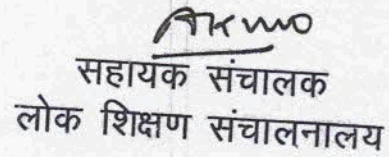 सहायक संचालक
लोक शिक्षण संचालनालय